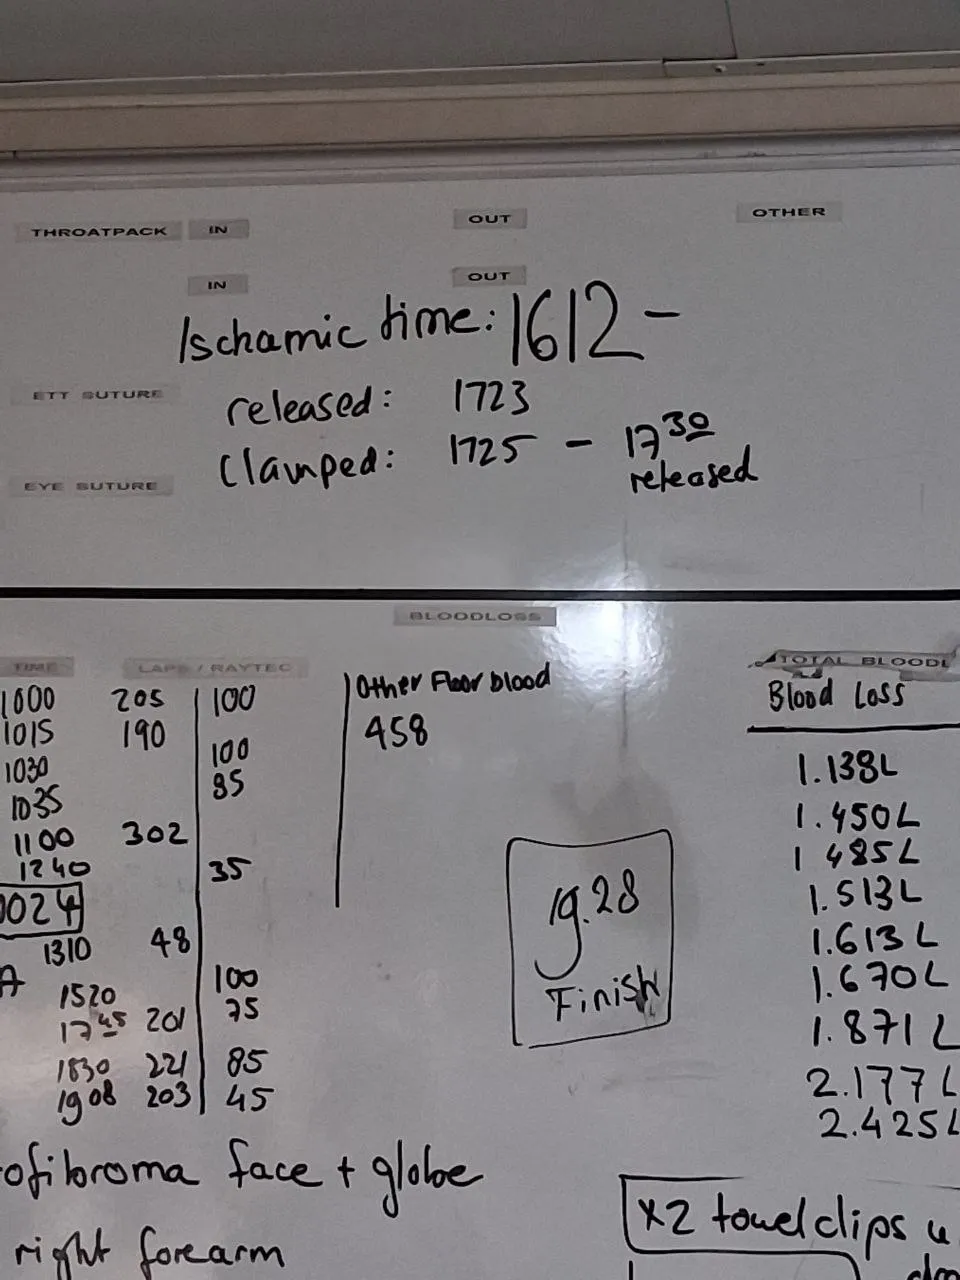 THROATPACK IN OUT OTHER
IN OUT
Ischamic time: 1612 -
ETT SUTURE
released: 1723
Clamped: 1725 - 17 30
released
EYE SUTURE
BLOODLOSS
TIME LAPS / RAYTEC TOTAL BLOODL
Other Floor blood
Blood Loss
1000 205 100
1015 190 458
1030 100
1035 85
1100 302
1240 35
0024
1310 48
A
1520 100
17 45 201 75
1830 221 85
1908 203 45
19.28
Finish
1.138L
1.450L
1 485L
1.513L
1.613L
1.670L
1.871L
2.177L
2.425L
ofibroma face + globe
right forearm
x2 towel clips u